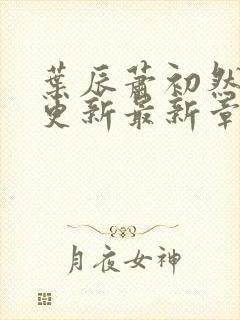 葉辰蕭初然
更新最新章
月夜女神